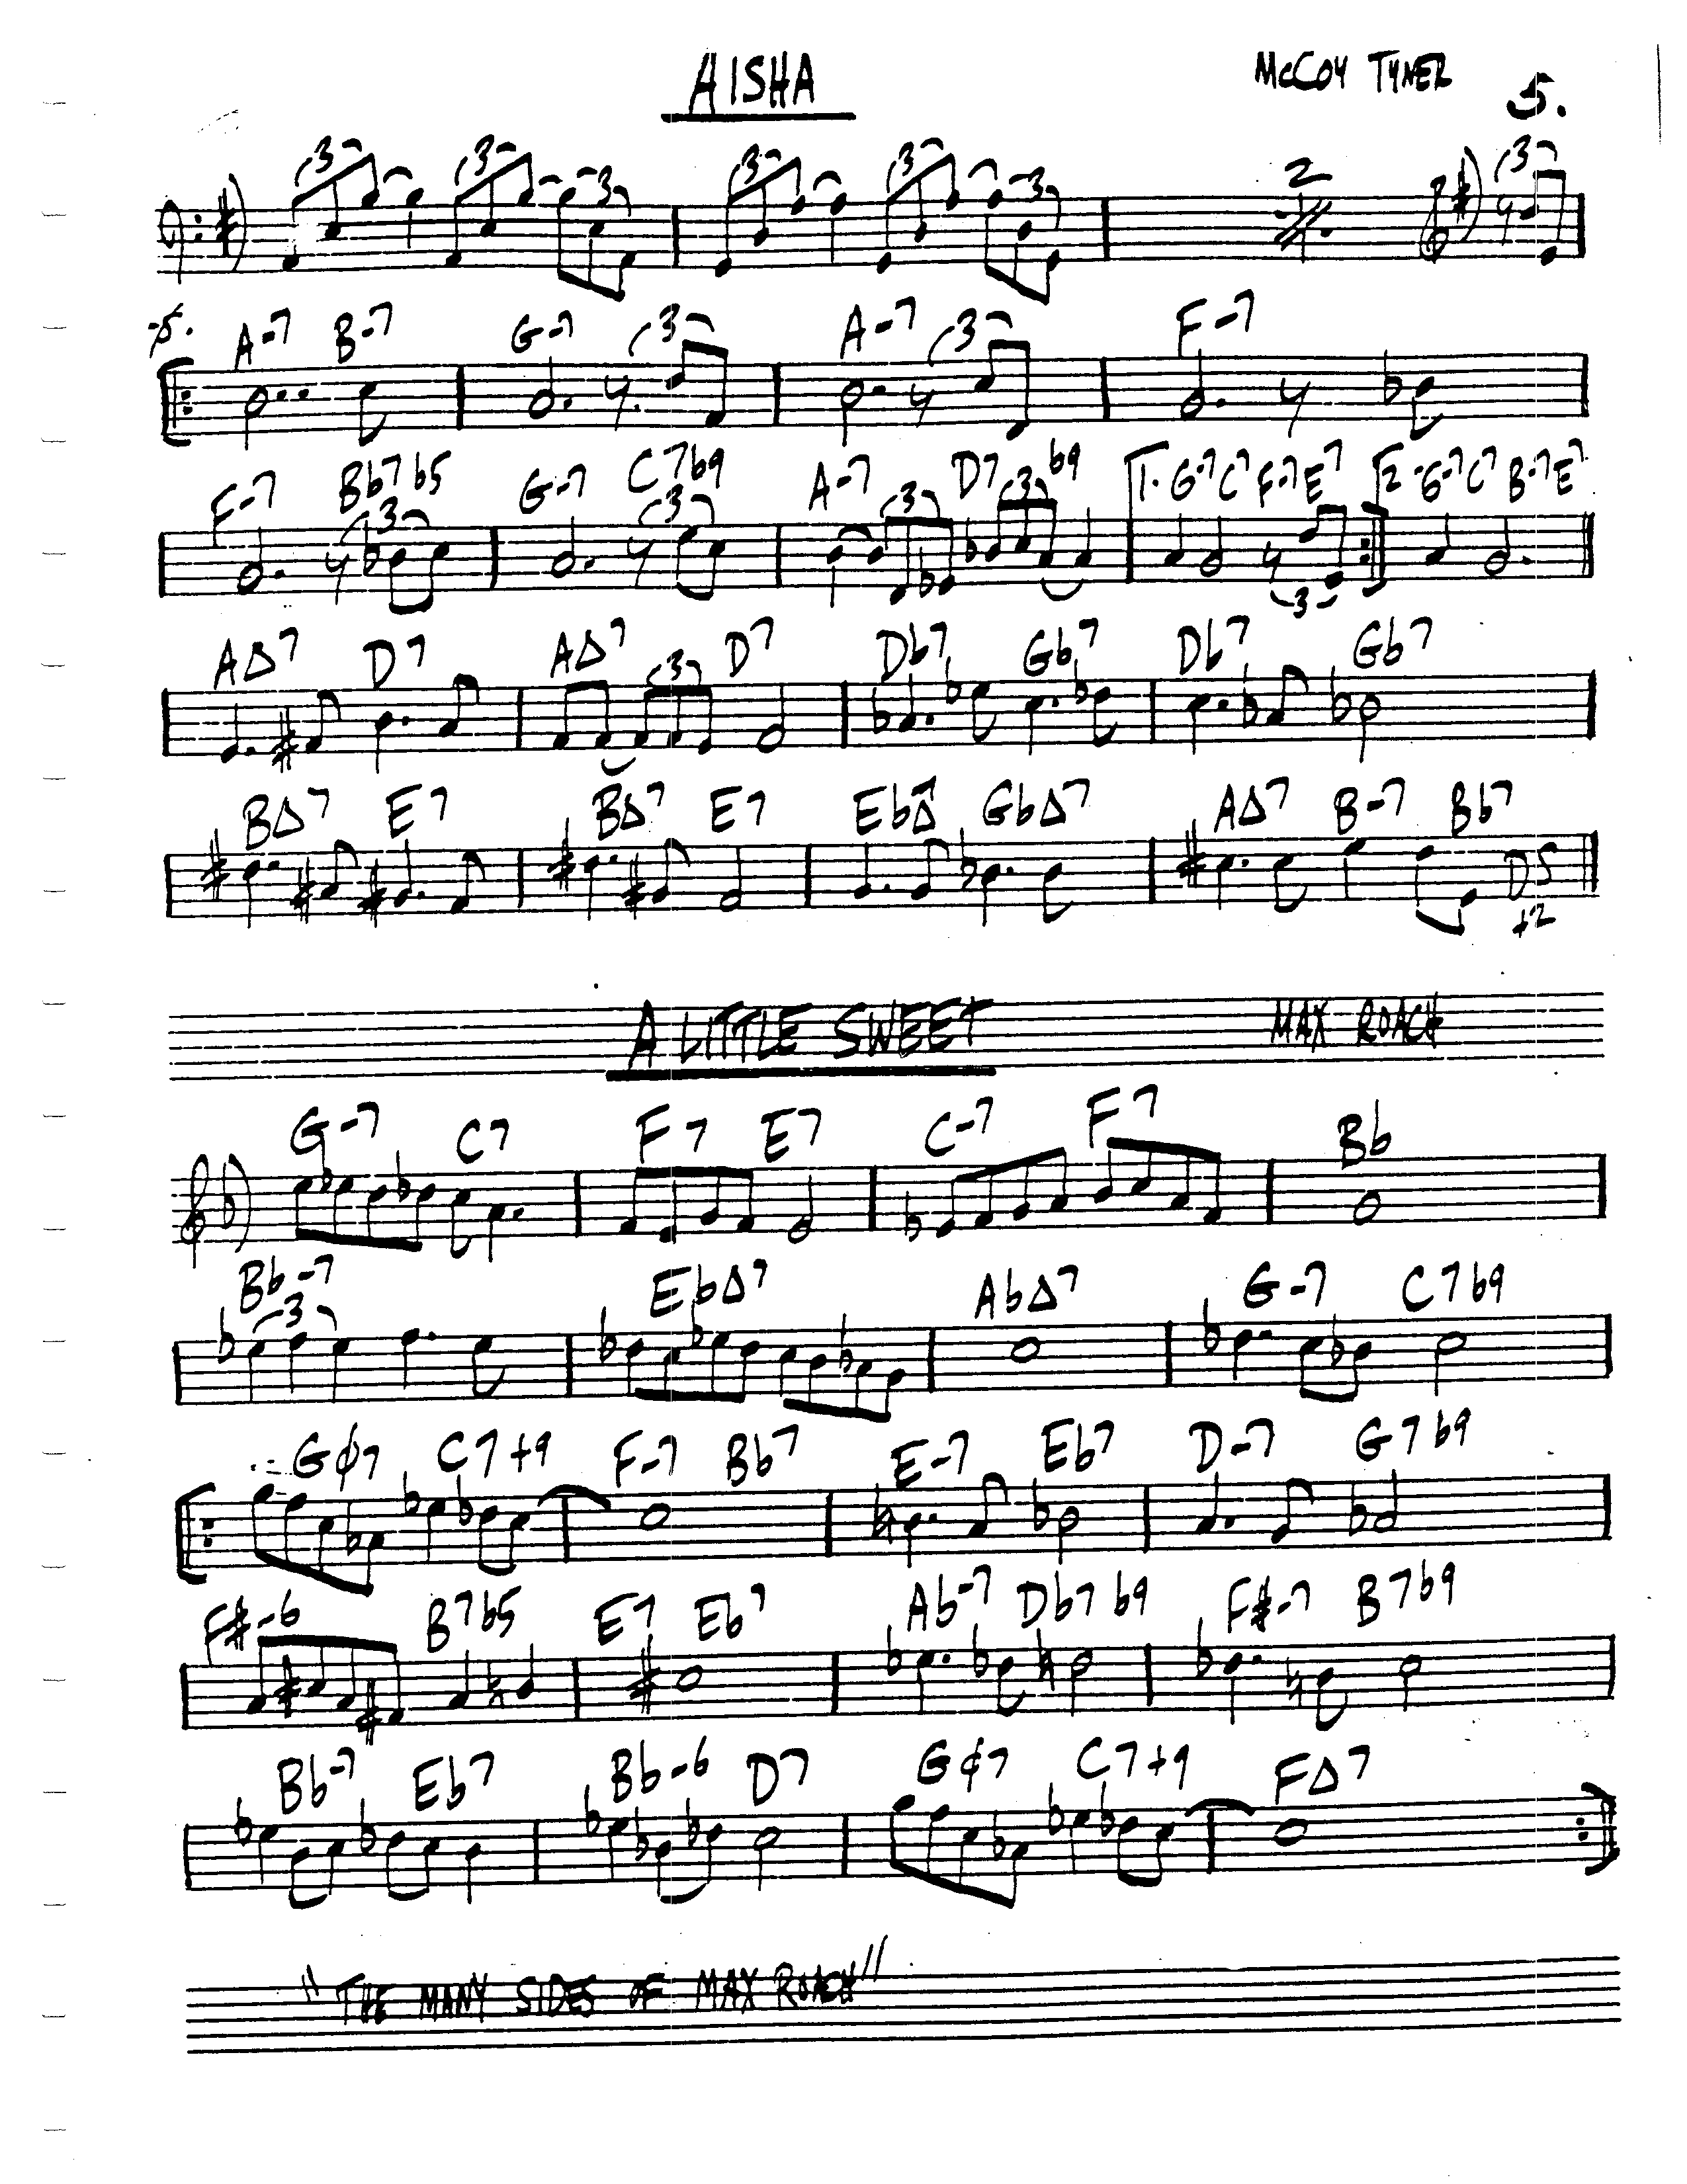 AISHA McCOY TYNER 5.
3 3 3 3 3 3 2 3
.S. A-7 B-7 G-7 3 A-7 3 F-7
F-7 Bb7b5 3 G-7 C7b9 3 A-7 3 D7 3 b9 1. G-7 C7 F-7 E7 2. G-7 C7 B-7 E7
3
A∆7 D7 A∆7 3 D7 Db7 Gb7 Db7 Gb7
B∆7 E7 B∆7 E7 Eb∆7 Gb∆7 A∆7 B-7 Bb7
DS
+2
A LITTLE SWEET MAX ROACH
G-7 C7 F7 E7 C-7 F7 Bb
Bb-7 3 Eb∆7 Ab∆7 G-7 C7b9
Gø7 C7+9 F-7 Bb7 E-7 Eb7 D-7 G7b9
F#-6 B7b5 E7 Eb7 Ab-7 Db7b9 F#-7 B7b9
Bb-7 Eb7 Bb-6 D7 Gø7 C7+9 F∆7
"THE MANY SIDES OF MAX ROACH"